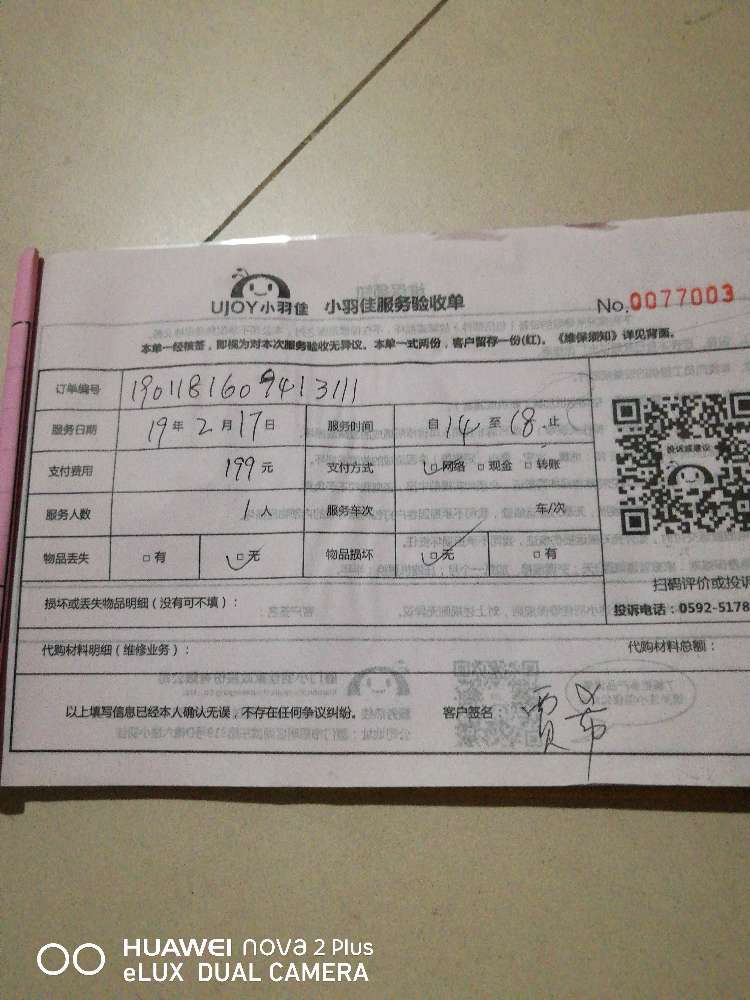 UJOY小羽佳 小羽佳服务验收单 No.0077003
本单一经核签，即视为对本次服务验收无异议。本单一式两份，客户留存一份(红)。《维保须知》详见背面。
订单编号 1901181609413111
服务日期 19年2月17日 服务时间 自14至18止
支付费用 199元 支付方式 □网络 □现金 □转账
服务人数 1人 服务车次 车/次
物品丢失 □有 □无 物品损坏 □无 □有
投诉或建议
扫码评价或投诉
损坏或丢失物品明细（没有可不填）： 投诉电话：0592-5178
代购材料明细（维修业务）： 代购材料总额：
以上填写信息已经本人确认无误，不存在任何争议纠纷。 客户签名： 贾希
HUAWEI nova 2 Plus
eLUX DUAL CAMERA